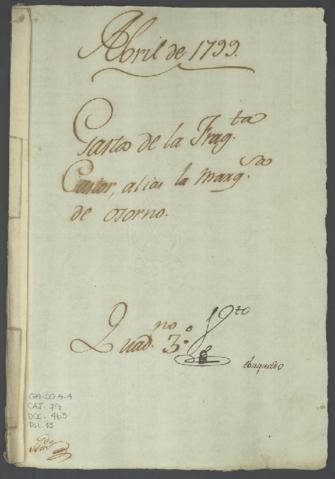 Abril de 1799.
Gastos de la Frag.ta
Castor, alias la Marq.sa
de osorno.
Quad.no 3.o
GM-CO 4-4
CAJ. 79
DOC. 465
Fol. 15